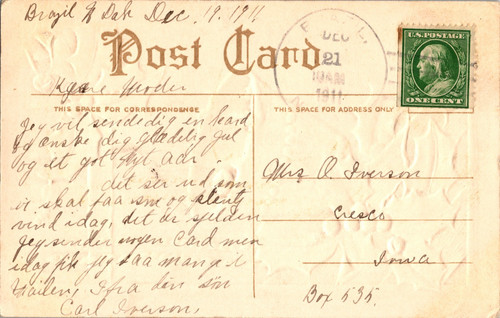 Brazil N Dak Dec. 19. 1911
Post Card
Kjære Moder
THIS SPACE FOR CORRESPONDENCE
THIS SPACE FOR ADDRESS ONLY
DEC
21
10 AM
1911
U.S. POSTAGE
ONE CENT
Jeg vil sende dig en kard
og ønske dig glædelig jul
og et got nyt aar.
det ser ud som
vi skal faa sne og plenty
vind idag, det er sjelden
Jeg sender nogen Card men
idag fik jeg saa mange i
Mailen, Fra din søn
Carl Iverson,
Mrs O Iverson
Cresco
Iowa
Box 535.